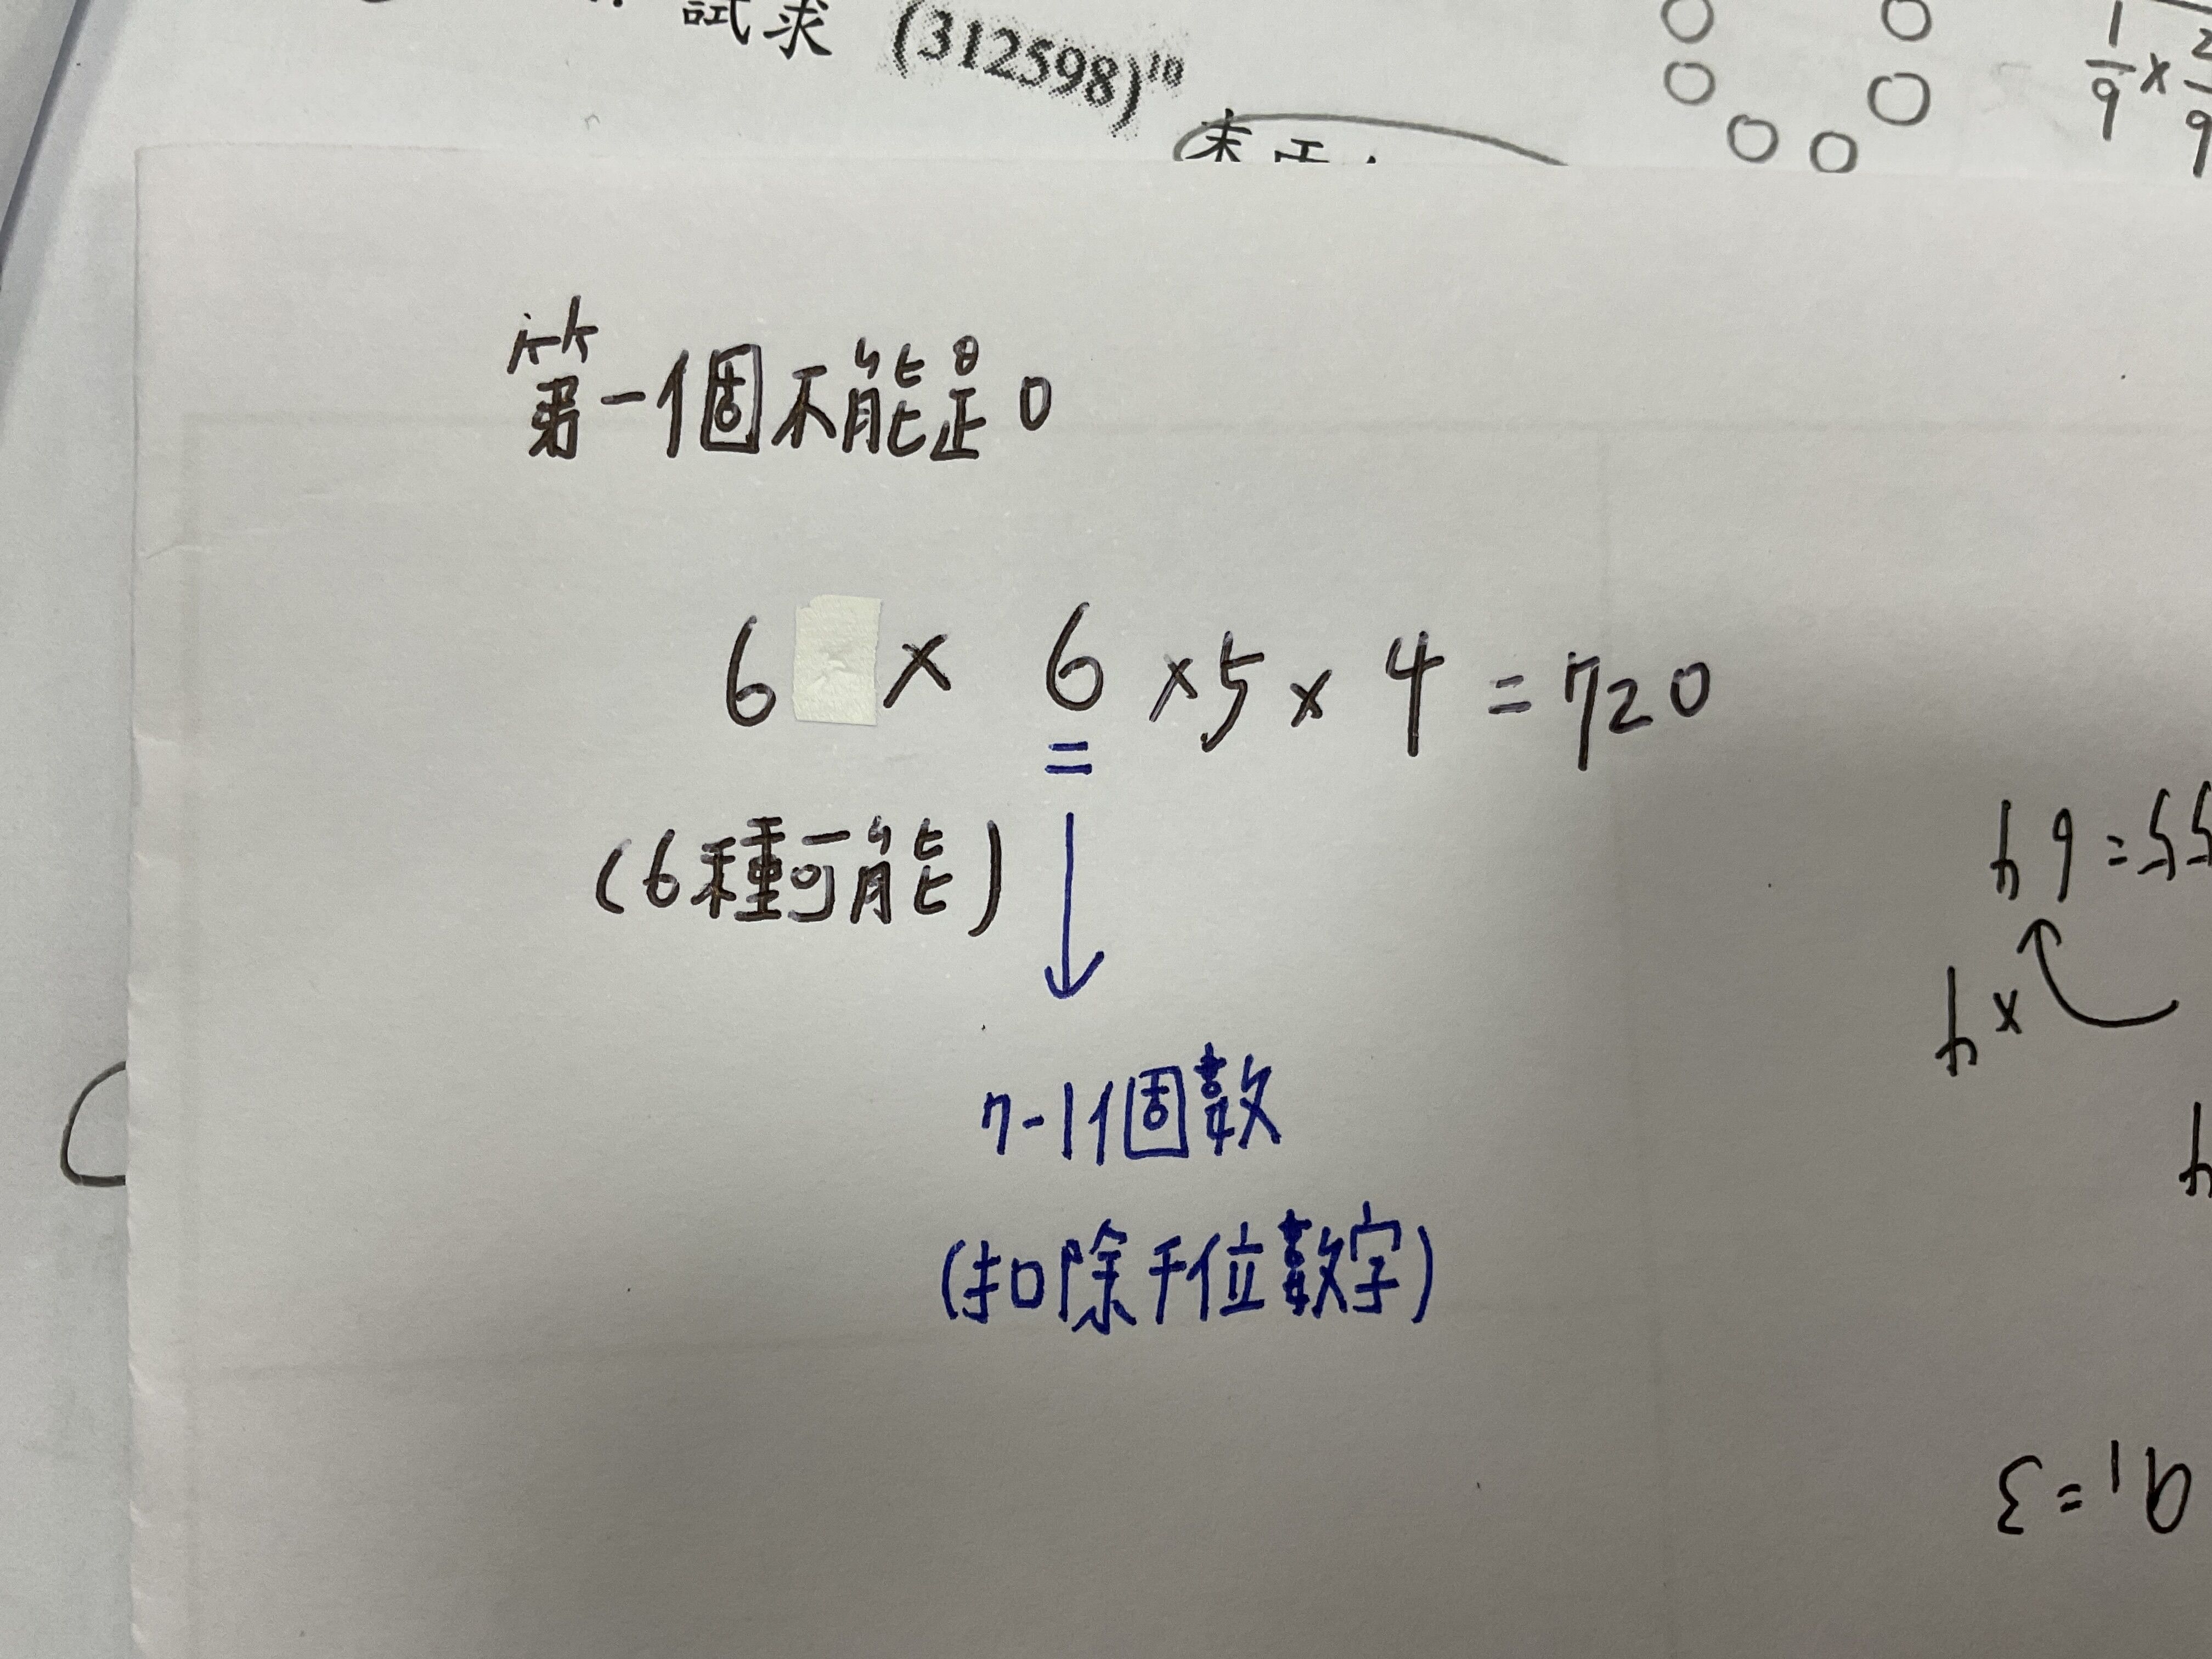 試求 (312598)¹⁰
1/9 × 2/9
第一個不能是0
6 × 6 × 5 × 4 = 720
(6種可能)
7-1個數
(扣除千位數字)
a₁ = 3